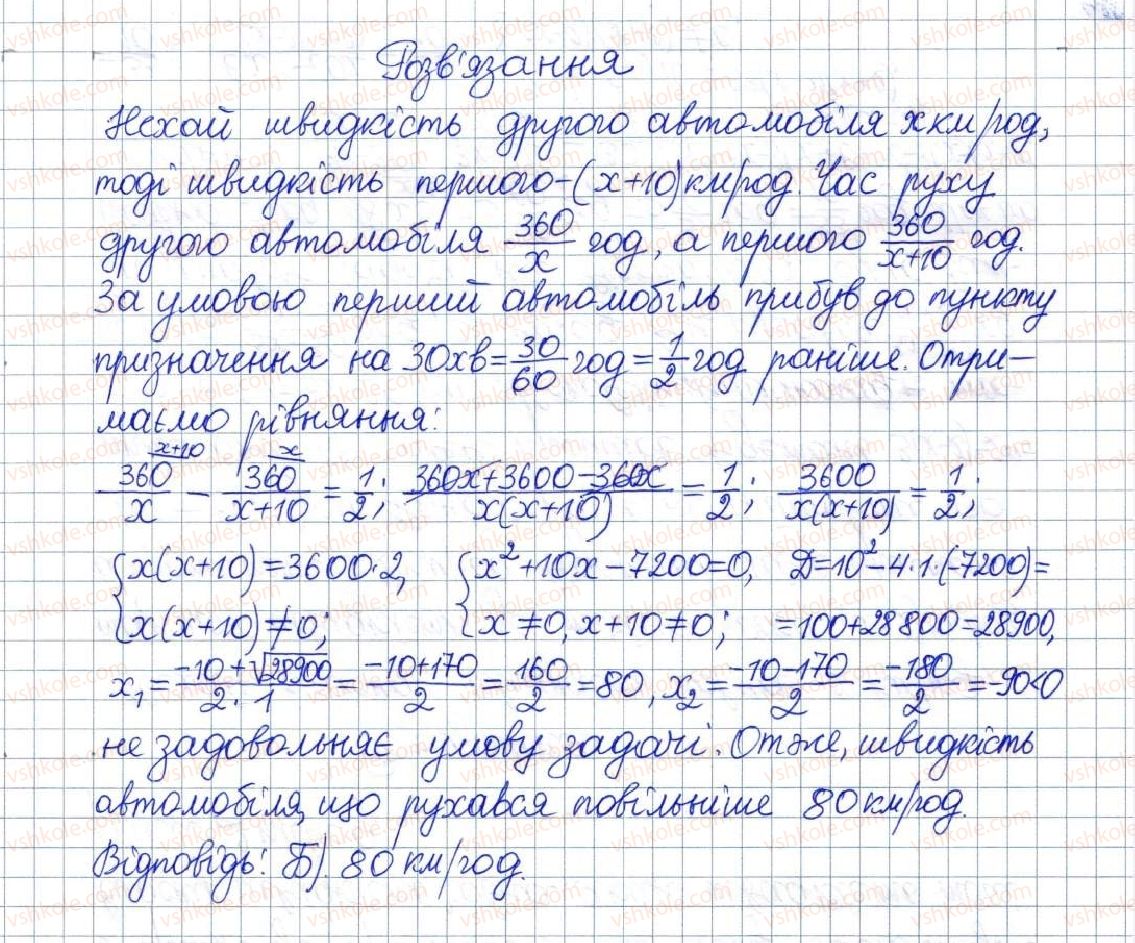 Розв'язання
Нехай швидкість другого автомобіля x км/год,
тоді швидкість першого - (x+10) км/год. Час руху
другого автомобіля 360/x год, а першого 360/(x+10) год.
За умовою перший автомобіль прибув до пункту
призначення на 30 хв = 30/60 год = 1/2 год раніше. Отри-
маємо рівняння:
360/x (x+10) − 360/(x+10) (x) = 1/2; (360x+3600−360x)/(x(x+10)) = 1/2; 3600/(x(x+10)) = 1/2;
{x(x+10)=3600·2, {x²+10x−7200=0, D=10²−4·1·(−7200)=
x(x+10)≠0; x≠0, x+10≠0; =100+28800=28900,
x₁ = (−10+√28900)/(2·1) = (−10+170)/2 = 160/2 = 80, x₂ = (−10−170)/2 = −180/2 = −90<0
не задовольняє умову задачі. Отже, швидкість
автомобіля, що рухався повільніше 80 км/год.
Відповідь: Б). 80 км/год.
vshkole.com